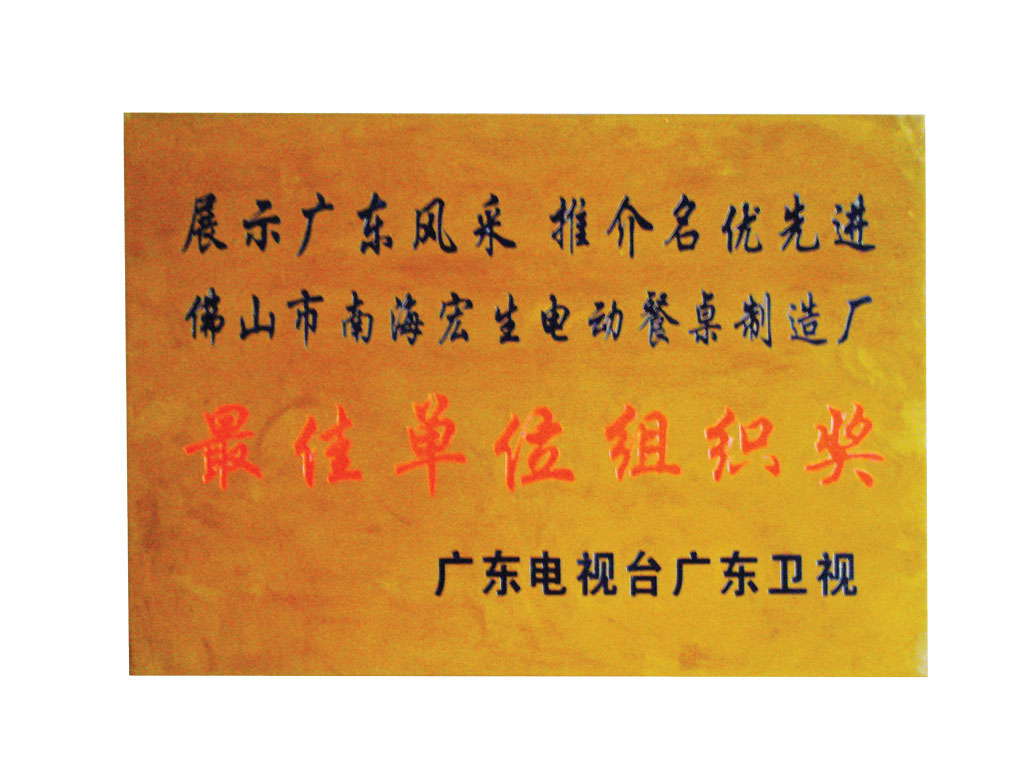 展示广东风采 推介名优先进
佛山市南海宏生电动餐桌制造厂
最佳单位组织奖
广东电视台广东卫视